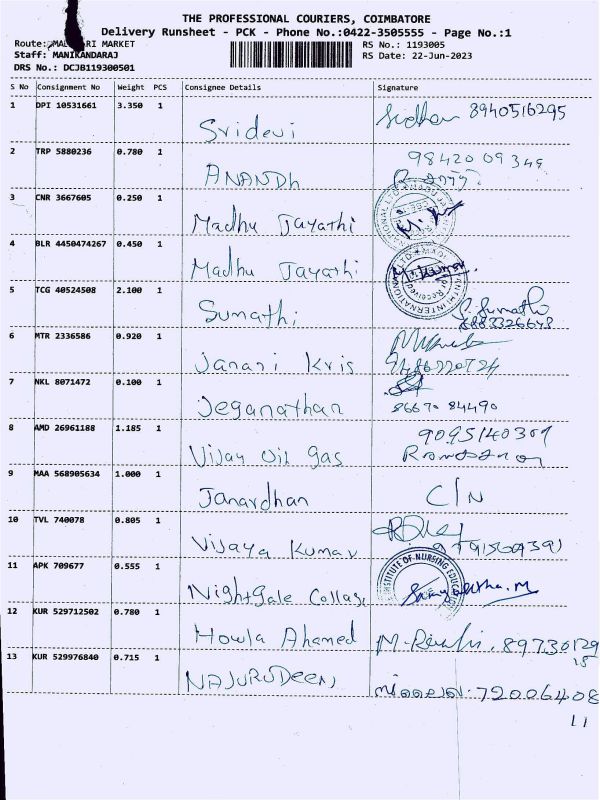 THE PROFESSIONAL COURIERS, COIMBATORE
Delivery Runsheet - PCK - Phone No.:0422-3505555 - Page No.:1
Route: MARKET RS No.: 1193005
Staff: MANIKANDARAJ RS Date: 22-Jun-2023
DRS No.: DCJB119300501
S No Consignment No Weight PCS Consignee Details Signature
1 DPI 10531661 3.350 1 Sridevi 8940516295
2 TRP 5880236 0.780 1 ANANDh 98420 09349
3 CNR 3667605 0.250 1 Madhu Jayathi
4 BLR 4450474267 0.450 1 Madhu Jayathi
5 TCG 40524508 2.100 1 Sumathi S. Sumathi
8883326648
6 MTR 2336586 0.920 1 Janani Kris
7 NKL 8071472 0.100 1 Jeganathan 86670 84490
8 AMD 26961188 1.185 1 Vijay Oil Gas
9 MAA 568905634 1.000 1 Janardhan C/N
10 TVL 740078 0.805 1 Vijaya Kumar
11 APK 709677 0.555 1 Nightgale Collage INSTITUTE OF NURSING
12 KUR 529712502 0.780 1 Mowla Ahamed 89730129
15
13 KUR 529976840 0.715 1 NAJURUDEEN 72006408
11